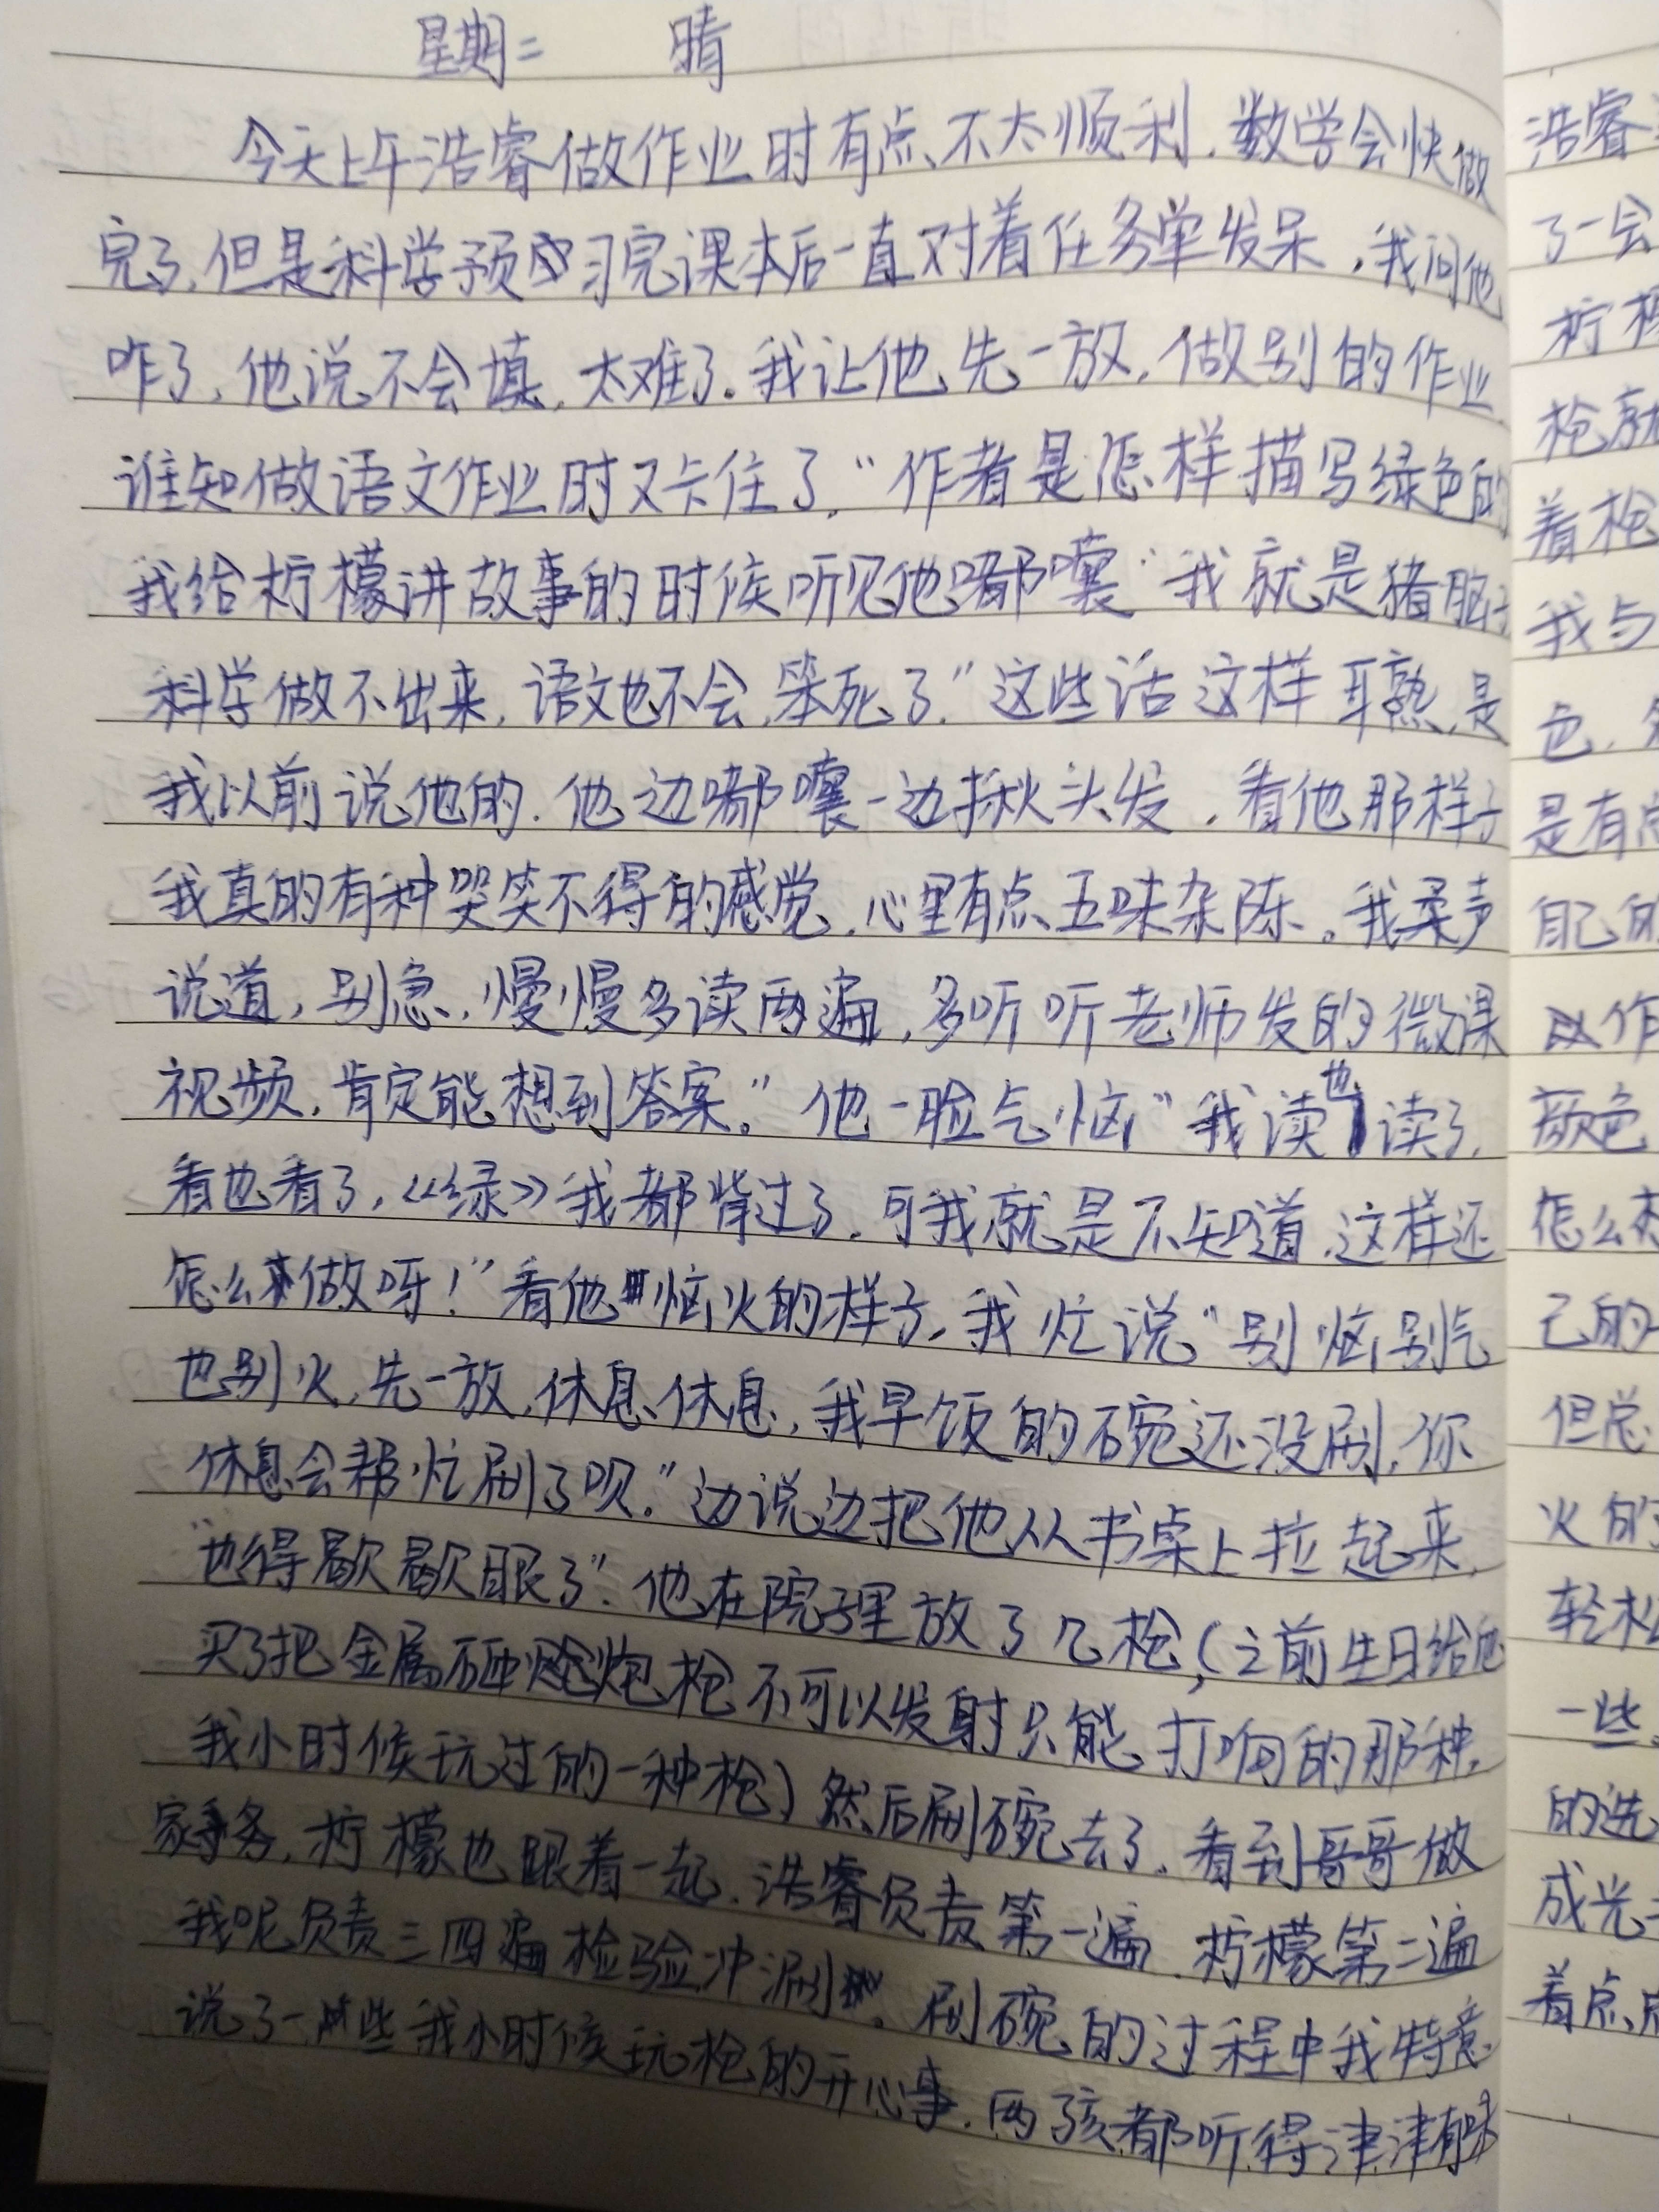 星期二 晴
今天上午浩睿做作业时有点不太顺利.数学会快做
完了,但是科学预习完课本后一直对着任务单发呆,我问他
咋了,他说不会填,太难了。我让他先一放,做别的作业
谁知做语文作业时又卡住了,"作者是怎样描写绿色的
我给柠檬讲故事的时候听见他嘟囔"我就是猪脑
科学做不出来,语文也不会,笨死了"这些话这样耳熟,是
我以前说他的.他边嘟囔一边揪头发,看他那样子
我真的有种哭笑不得的感觉,心里有点五味杂陈。我柔声
说道,别急,慢慢多读两遍,多听听老师发的微课
视频,肯定能想到答案。"他一脸气恼"我读也读了,
看也看了,《绿》我都背过了,可我就是不知道,这样还
怎么来做呀!"看他恼火的样子,我忙说"别恼别气
也别火,先一放,休息休息,我早饭的碗还没刷,你
休息会帮忙刷了呗。"边说边把他从书桌上拉起来,
"也得歇歇眼了".他在院子里放了几枪,(之前生日给他
买了把金属砸炮枪不可以发射只能打响的那种,
我小时候玩过的一种枪)然后刷碗去了.看到哥哥做
家务,柠檬也跟着一起.浩睿负责第一遍,柠檬第二遍
我呢负责三四遍检验冲涮。刷碗的过程中我特意
说了一些我小时候玩枪的开心事.两孩都听得津津有味
浩睿
了一会
柠檬
枪就
着枪
我与
色,
是有点
自己的
作
颜色
怎么
己的
但总
火的
轻松
一些
的选
成光
着点点